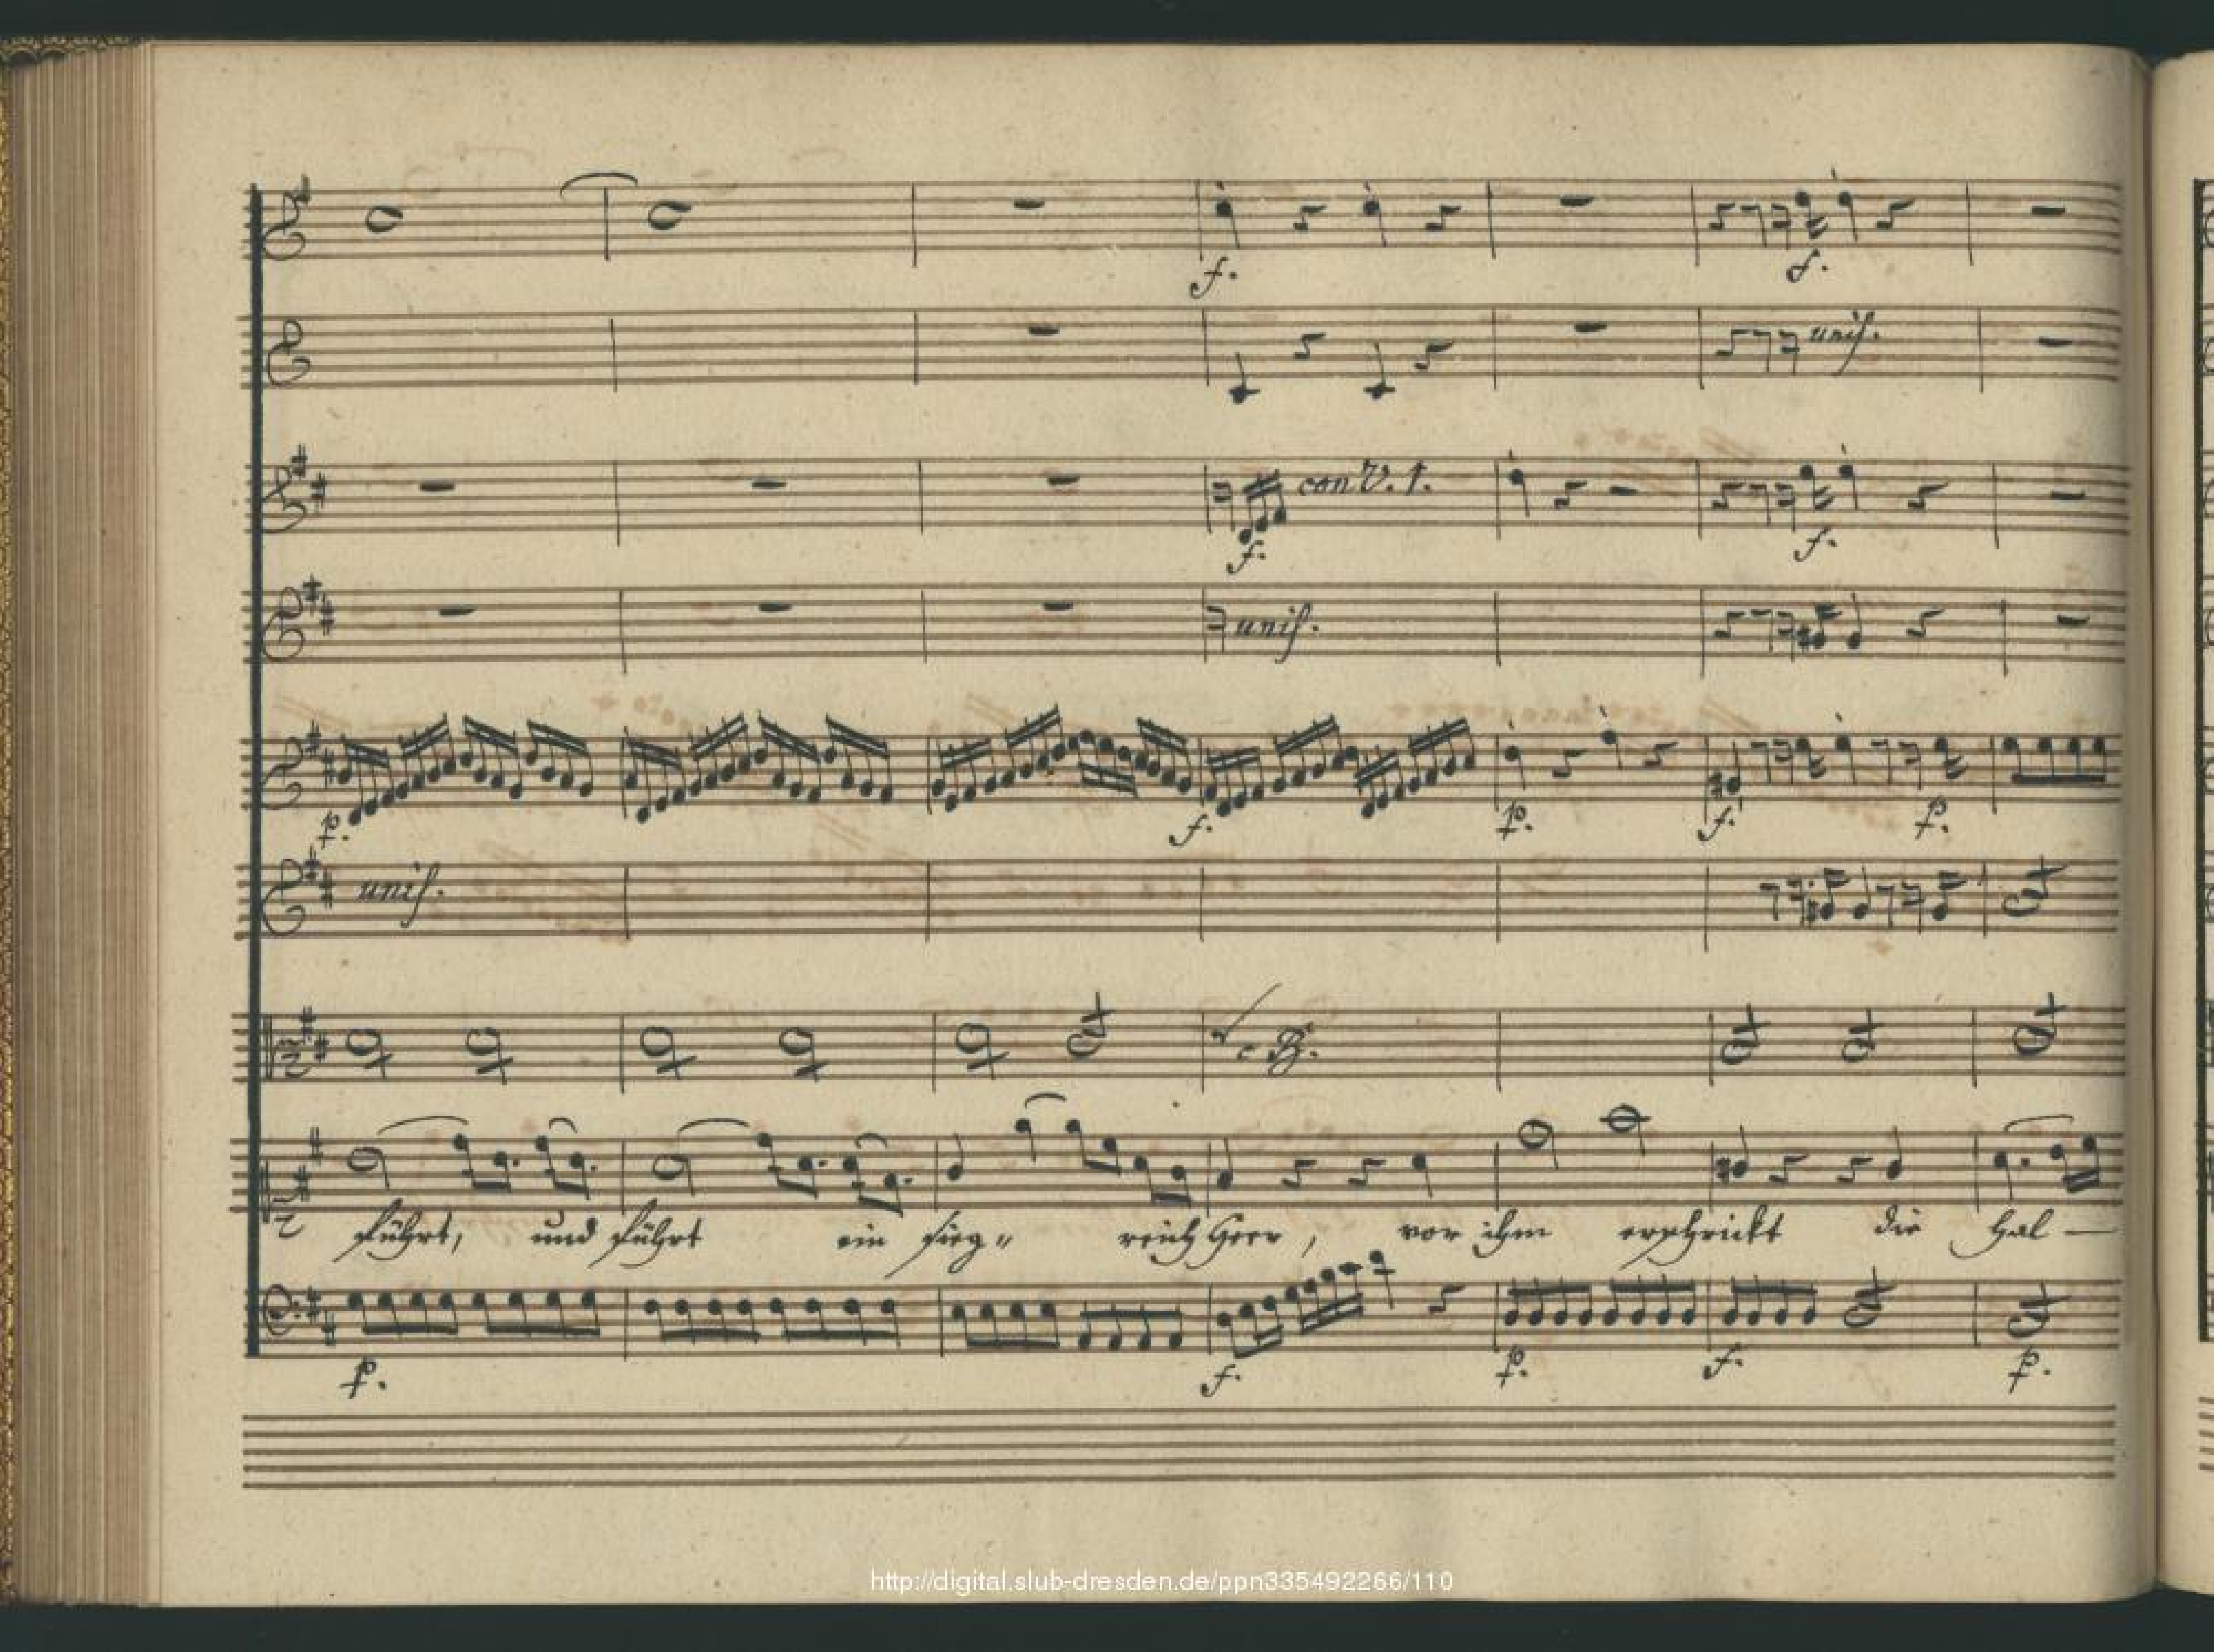 f. f.
unis.
con V. 1.
f. f.
unis.
p. f. p. f. p.
unis.
c B.
führt, und führt ein sieg" reich Heer, vor ihm erschrickt die Hal—
p. f. p. f. p.
http://digital.slub-dresden.de/ppn335492266/110